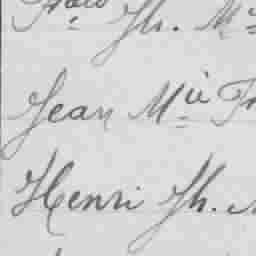 Jh. M
Jean M.ie Fr
Henri Jh.